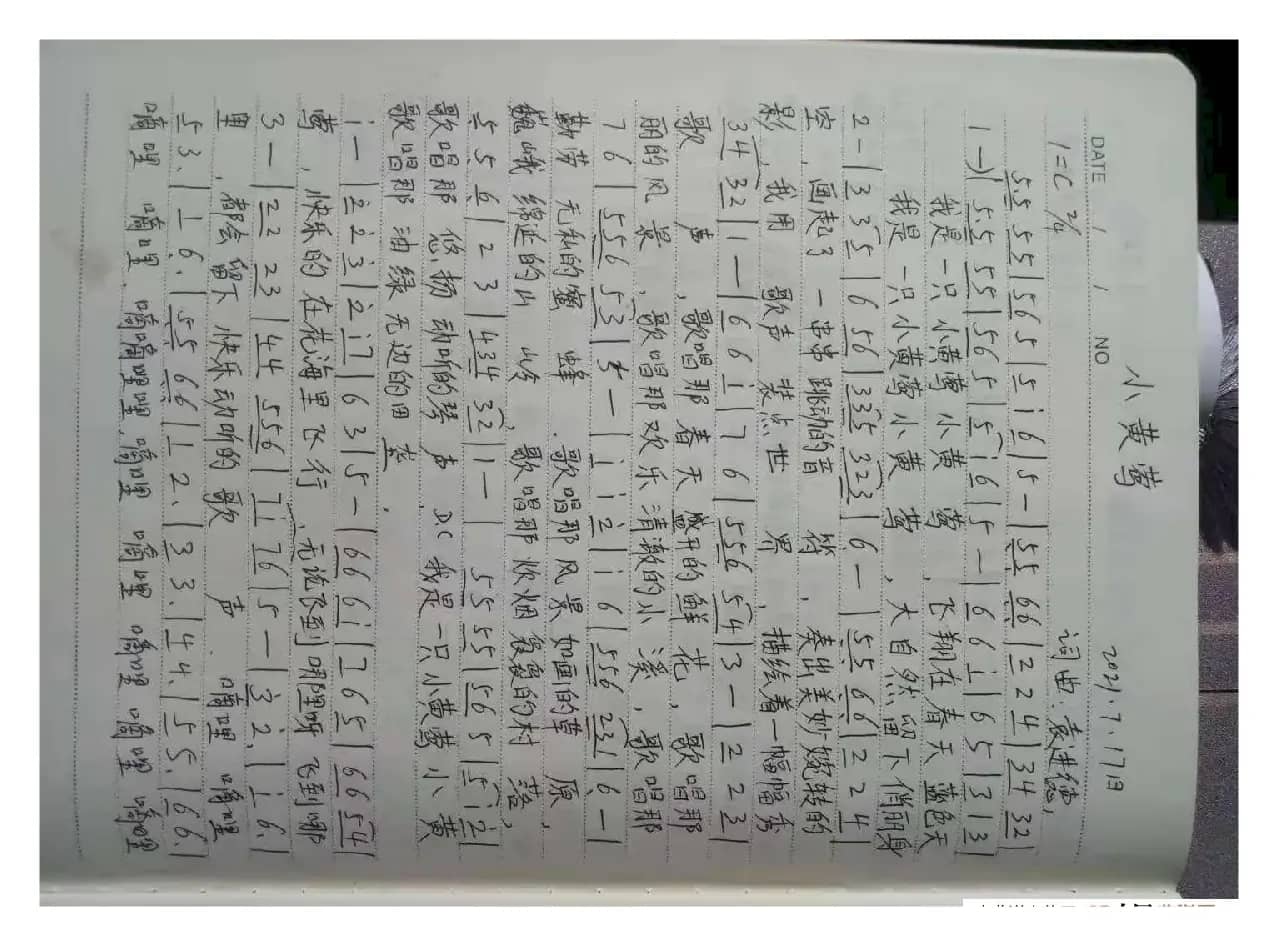 DATE / / NO
小黄莺
2021.7.17日
1=C 2/4
词曲:袁进
5.5 5 5 | 5 6 5 | 5 i 6 | 5 — | 5 5 6 6 | 2 2 4 | 3 4 3 2 |
1 —) | 5.5 5 5 | 5 6 5 | 5 i 6 | 5 — | 6 6 i | 6 5 | 3 1 3 |
我是一只小黄莺小黄莺,飞翔在春天蓝色天
我是一只小黄莺小黄莺,大自然留下俏丽身
2 — | 3 3 5 | 6 5 6 | 3 3 5 3 2 3 | 6 — | 5 5 6 6 | 2 2 4 |
空,画起了一串串跳动的音符,奏出美妙婉转的
影,我用歌声装点世界,描绘着一幅幅秀
3 4 3 2 | 1 — | 6 6 i | 7 6 | 5 5 6 5 4 | 3 — | 2 2 3 |
歌声,歌唱那春天盛开的鲜花,歌唱那
丽的风景,歌唱那欢乐清澈的小溪,歌唱那
7 6 | 5 5 6 5 3 | 5 — | i i 2 | i 6 | 5 5 6 2 3 1 | 6 — |
勤劳无私的蜜蜂,歌唱那风景如画的草原,
巍峨绵延的山峻,歌唱那炊烟袅袅的村落,
5 5 6 | 2 3 | 4 3 4 3 2 | 1 — 5 5 5 5 | 5 6 5 | 5 i 2 |
歌唱那悠扬动听的琴声 DC 我是一只小黄莺小黄
歌唱那油绿无边的田
i — | 2 2 3 | 2 i 7 | 6 3 | 5 — | 6 6 6 i | 7 6 5 | 6 6 5 4 |
莺,快乐的在花海里飞行,无论飞到哪里呀飞到哪
3 — | 2 2 2 3 | 4 4 5 5 6 | 7 i 7 6 | 5 — | 3 2. | i 6. |
里,都会留下快乐动听的歌声 嘀哩 嘀哩
5 3. | 1 6. | 5 5 6 6 | 1 2. | 3 3. | 4 4. | 5 5. | 6 6. |
嘀哩 嘀哩,嘀嘀哩哩,嘀哩 嘀哩 嘀哩 嘀哩 嘀哩